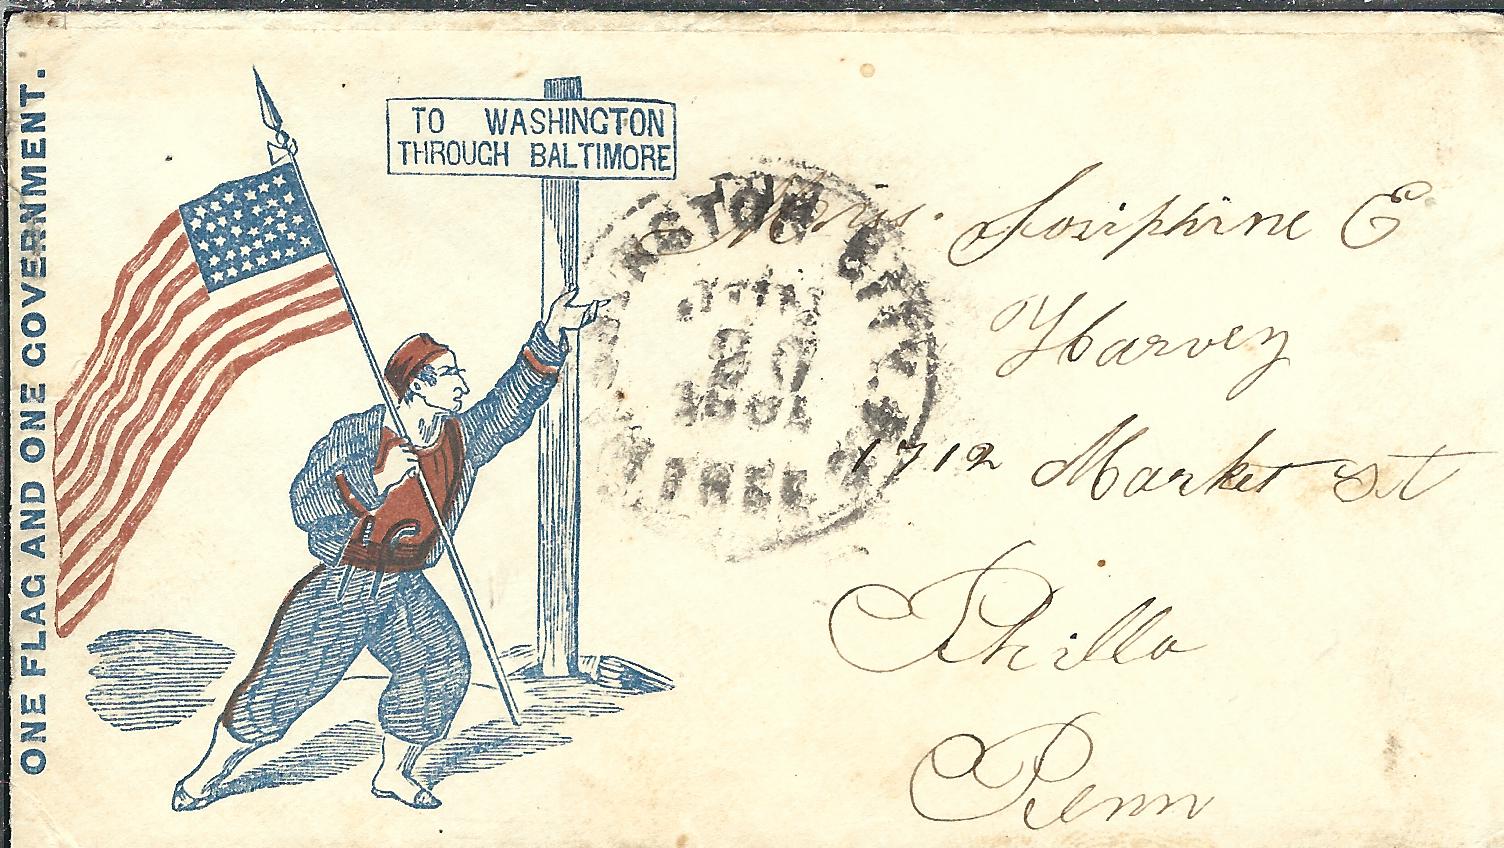 ONE FLAG AND ONE GOVERNMENT.
TO WASHINGTON
THROUGH BALTIMORE
JUN
1861
FREE
Miss. Josiphine E
Harvey
1712 Market st
Philla
Penn